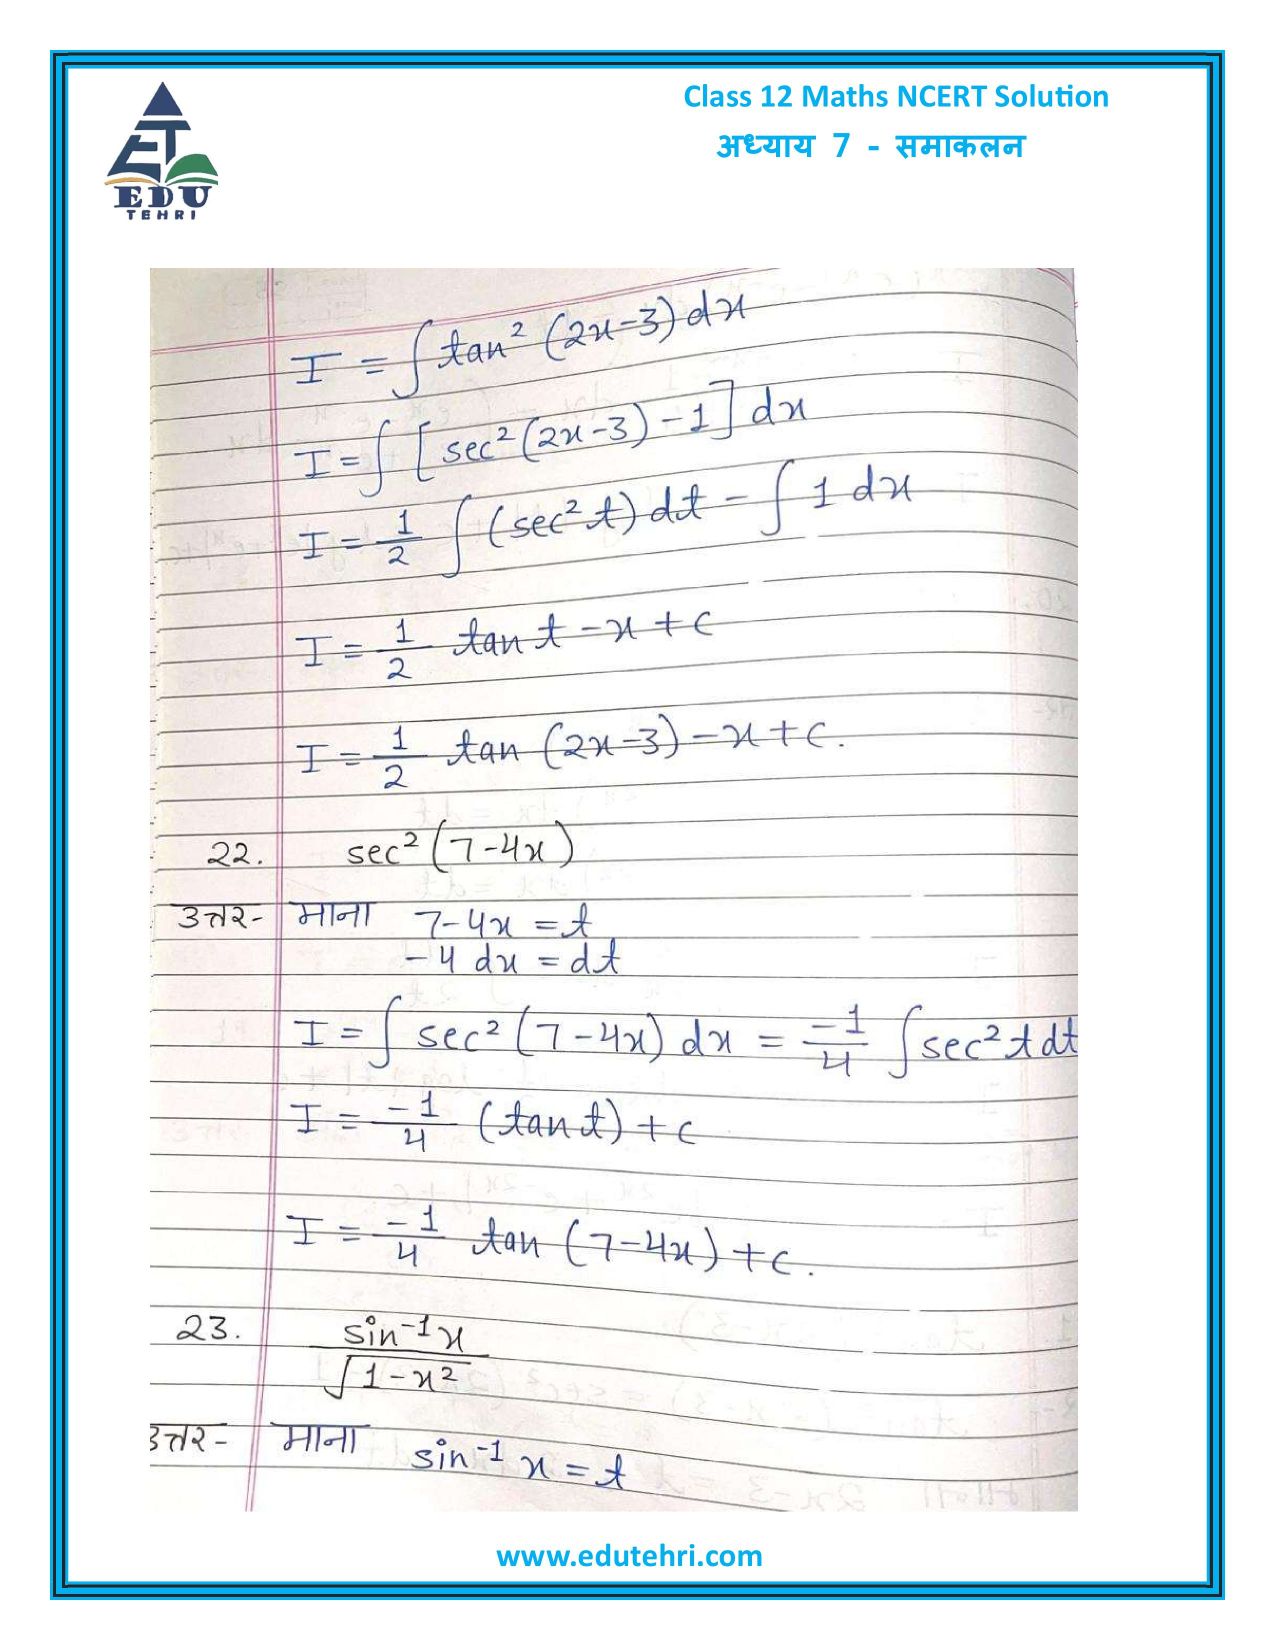 Class 12 Maths NCERT Solution
अध्याय 7 - समाकलन
EDU
TEHRI
I = ∫ tan² (2x-3) dx
I = ∫ [ sec² (2x-3) - 1 ] dx
I = 1/2 ∫ (sec² t) dt - ∫ 1 dx
I = 1/2 tan t - x + c
I = 1/2 tan (2x-3) - x + c.
22. sec² (7-4x)
उत्तर- माना 7-4x = t
-4 dx = dt
I = ∫ sec² (7-4x) dx = -1/4 ∫ sec² t dt
I = -1/4 (tan t) + c
I = -1/4 tan (7-4x) + c.
23. sin⁻¹x / √1-x²
उत्तर- माना sin⁻¹ x = t
www.edutehri.com